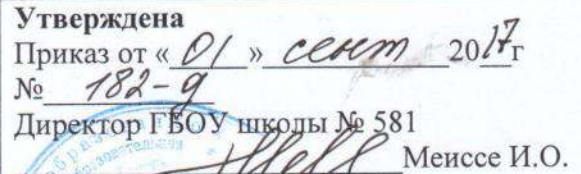 Утверждена
Приказ от « 01 » сент 2017г
№ 182-д
Директор ГБОУ школы № 581
Меиссе И.О.